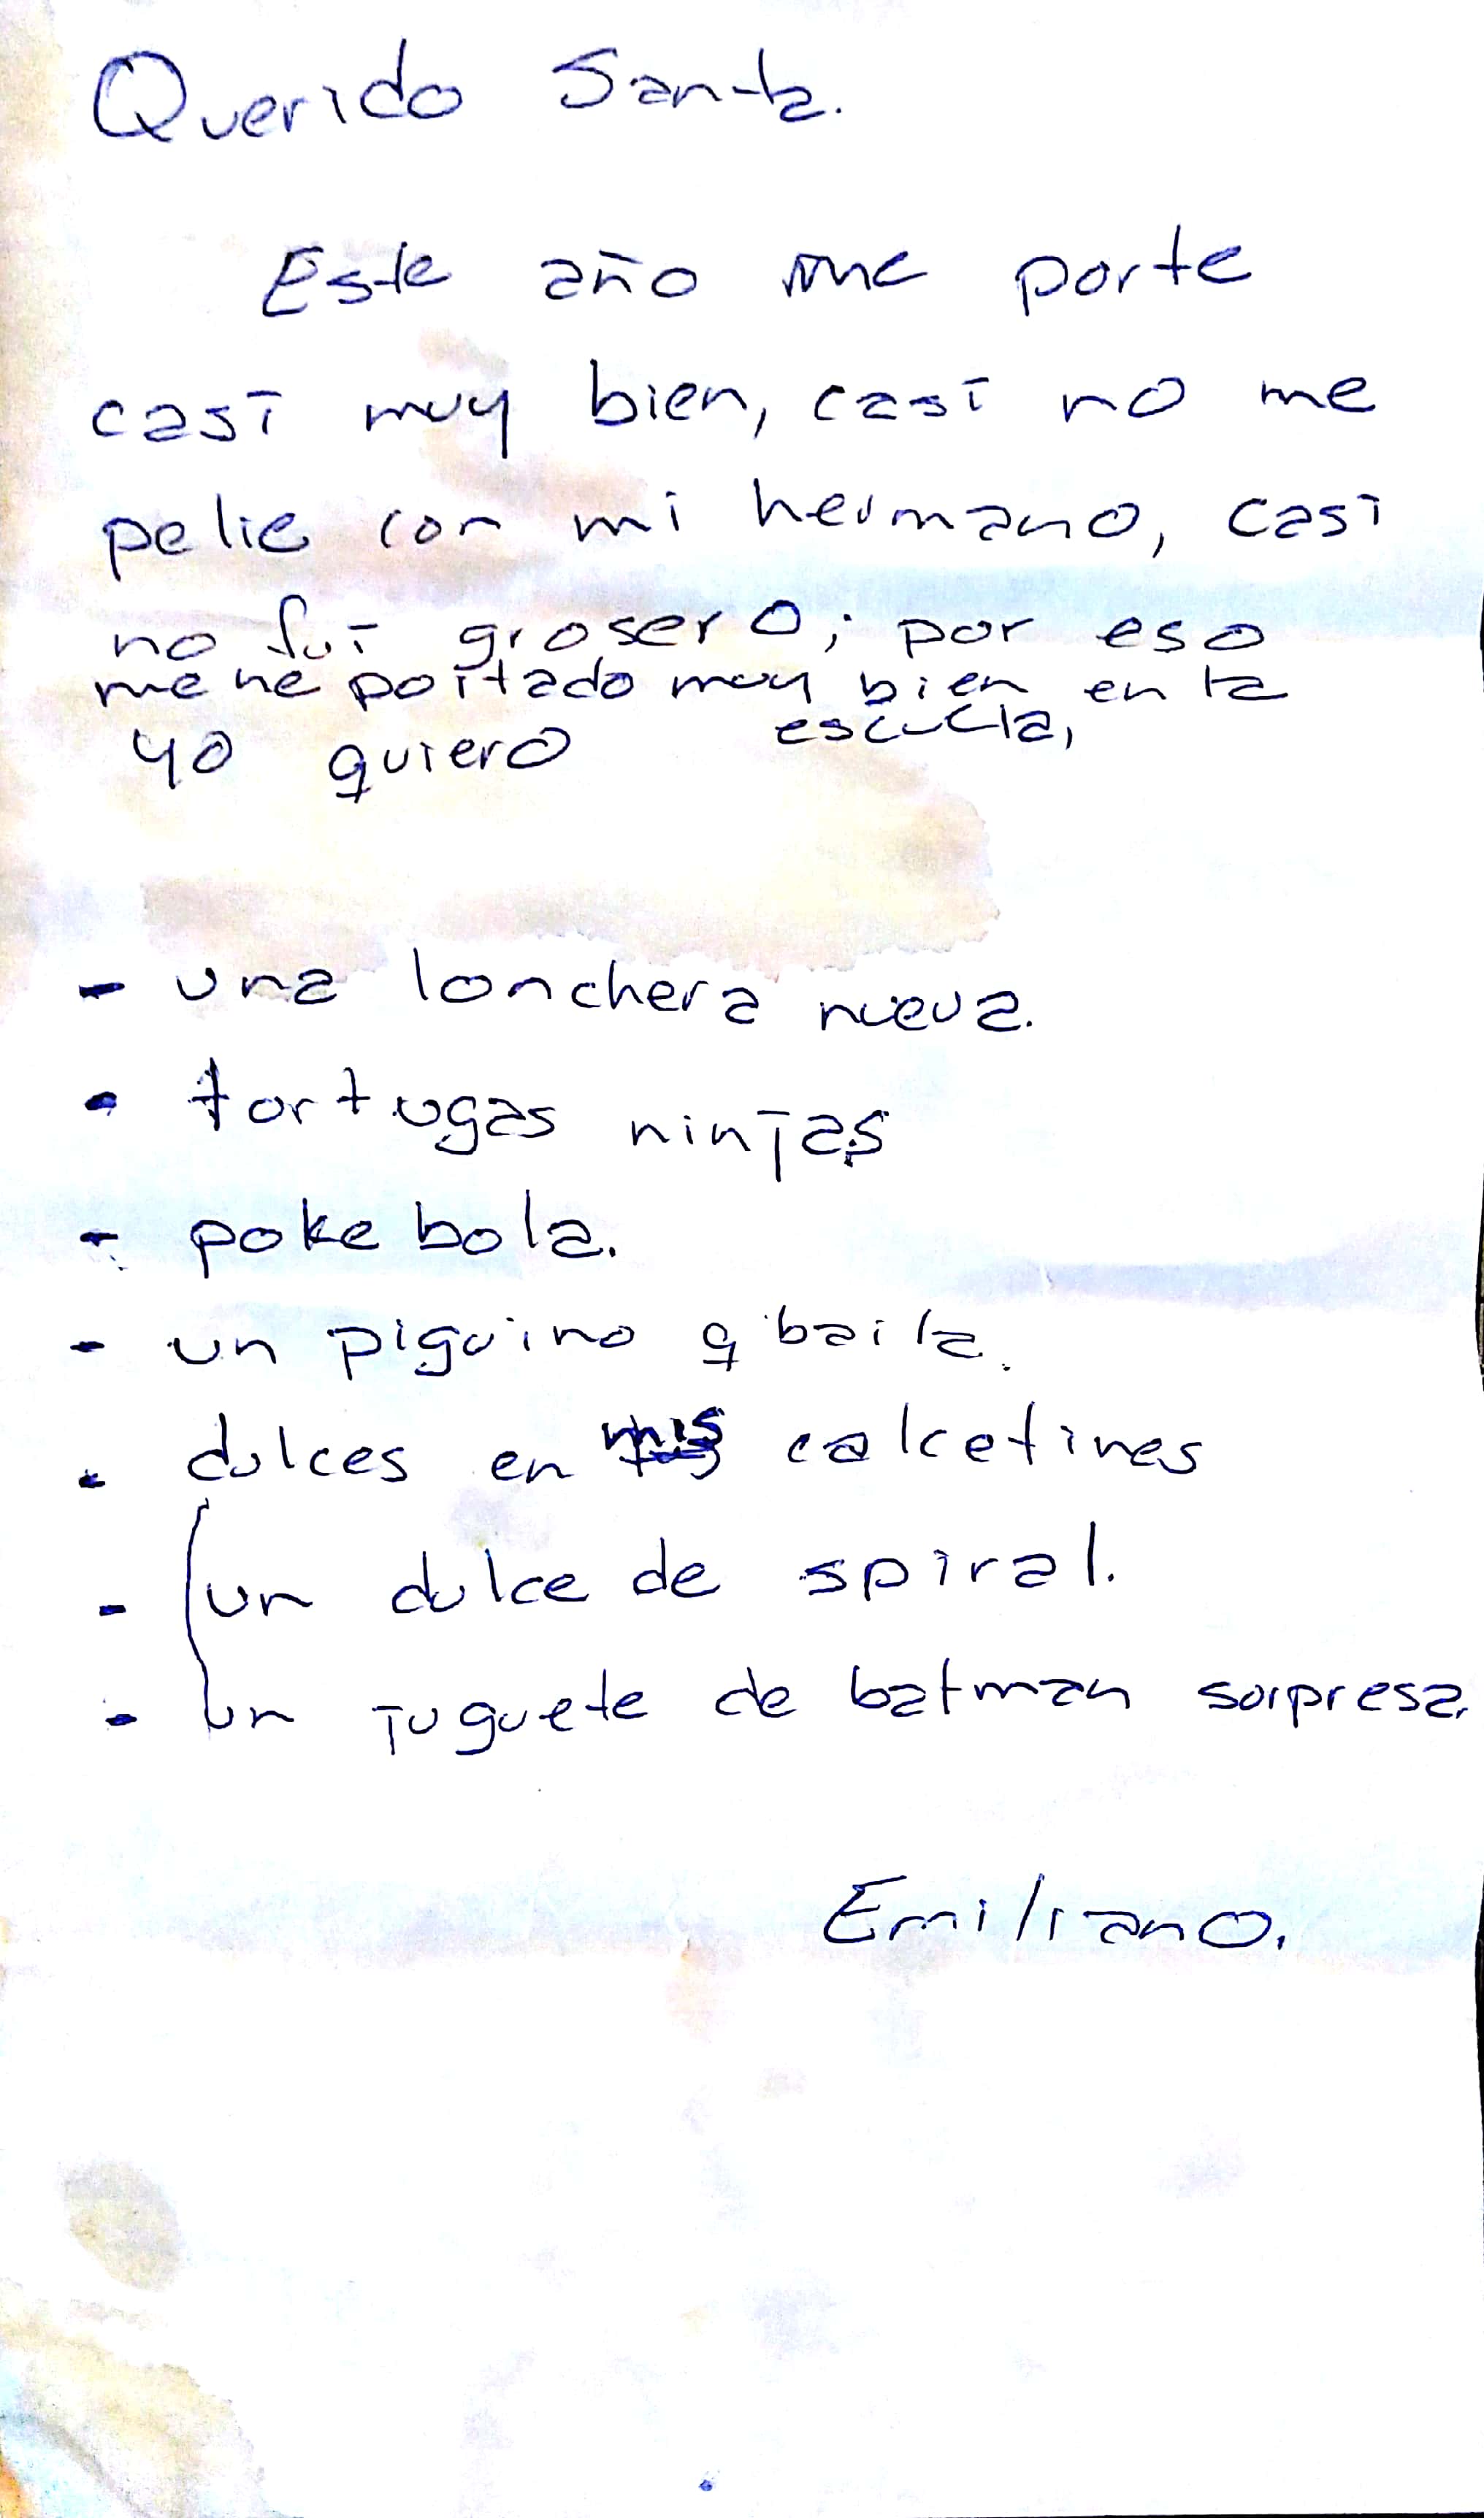 Querido Santa.
Este año me porte
casi muy bien, casi no me
pelie con mi hermano, casi
no fui grosero; por eso
me he portado muy bien en la
escuela,
yo quiero
- una lonchera nueva.
- tortugas ninjas
- poke bola.
- un piguino q baila.
- dulces en mis calcetines
- un dulce de spiral.
- un juguete de batman sorpresa.
Emiliano.